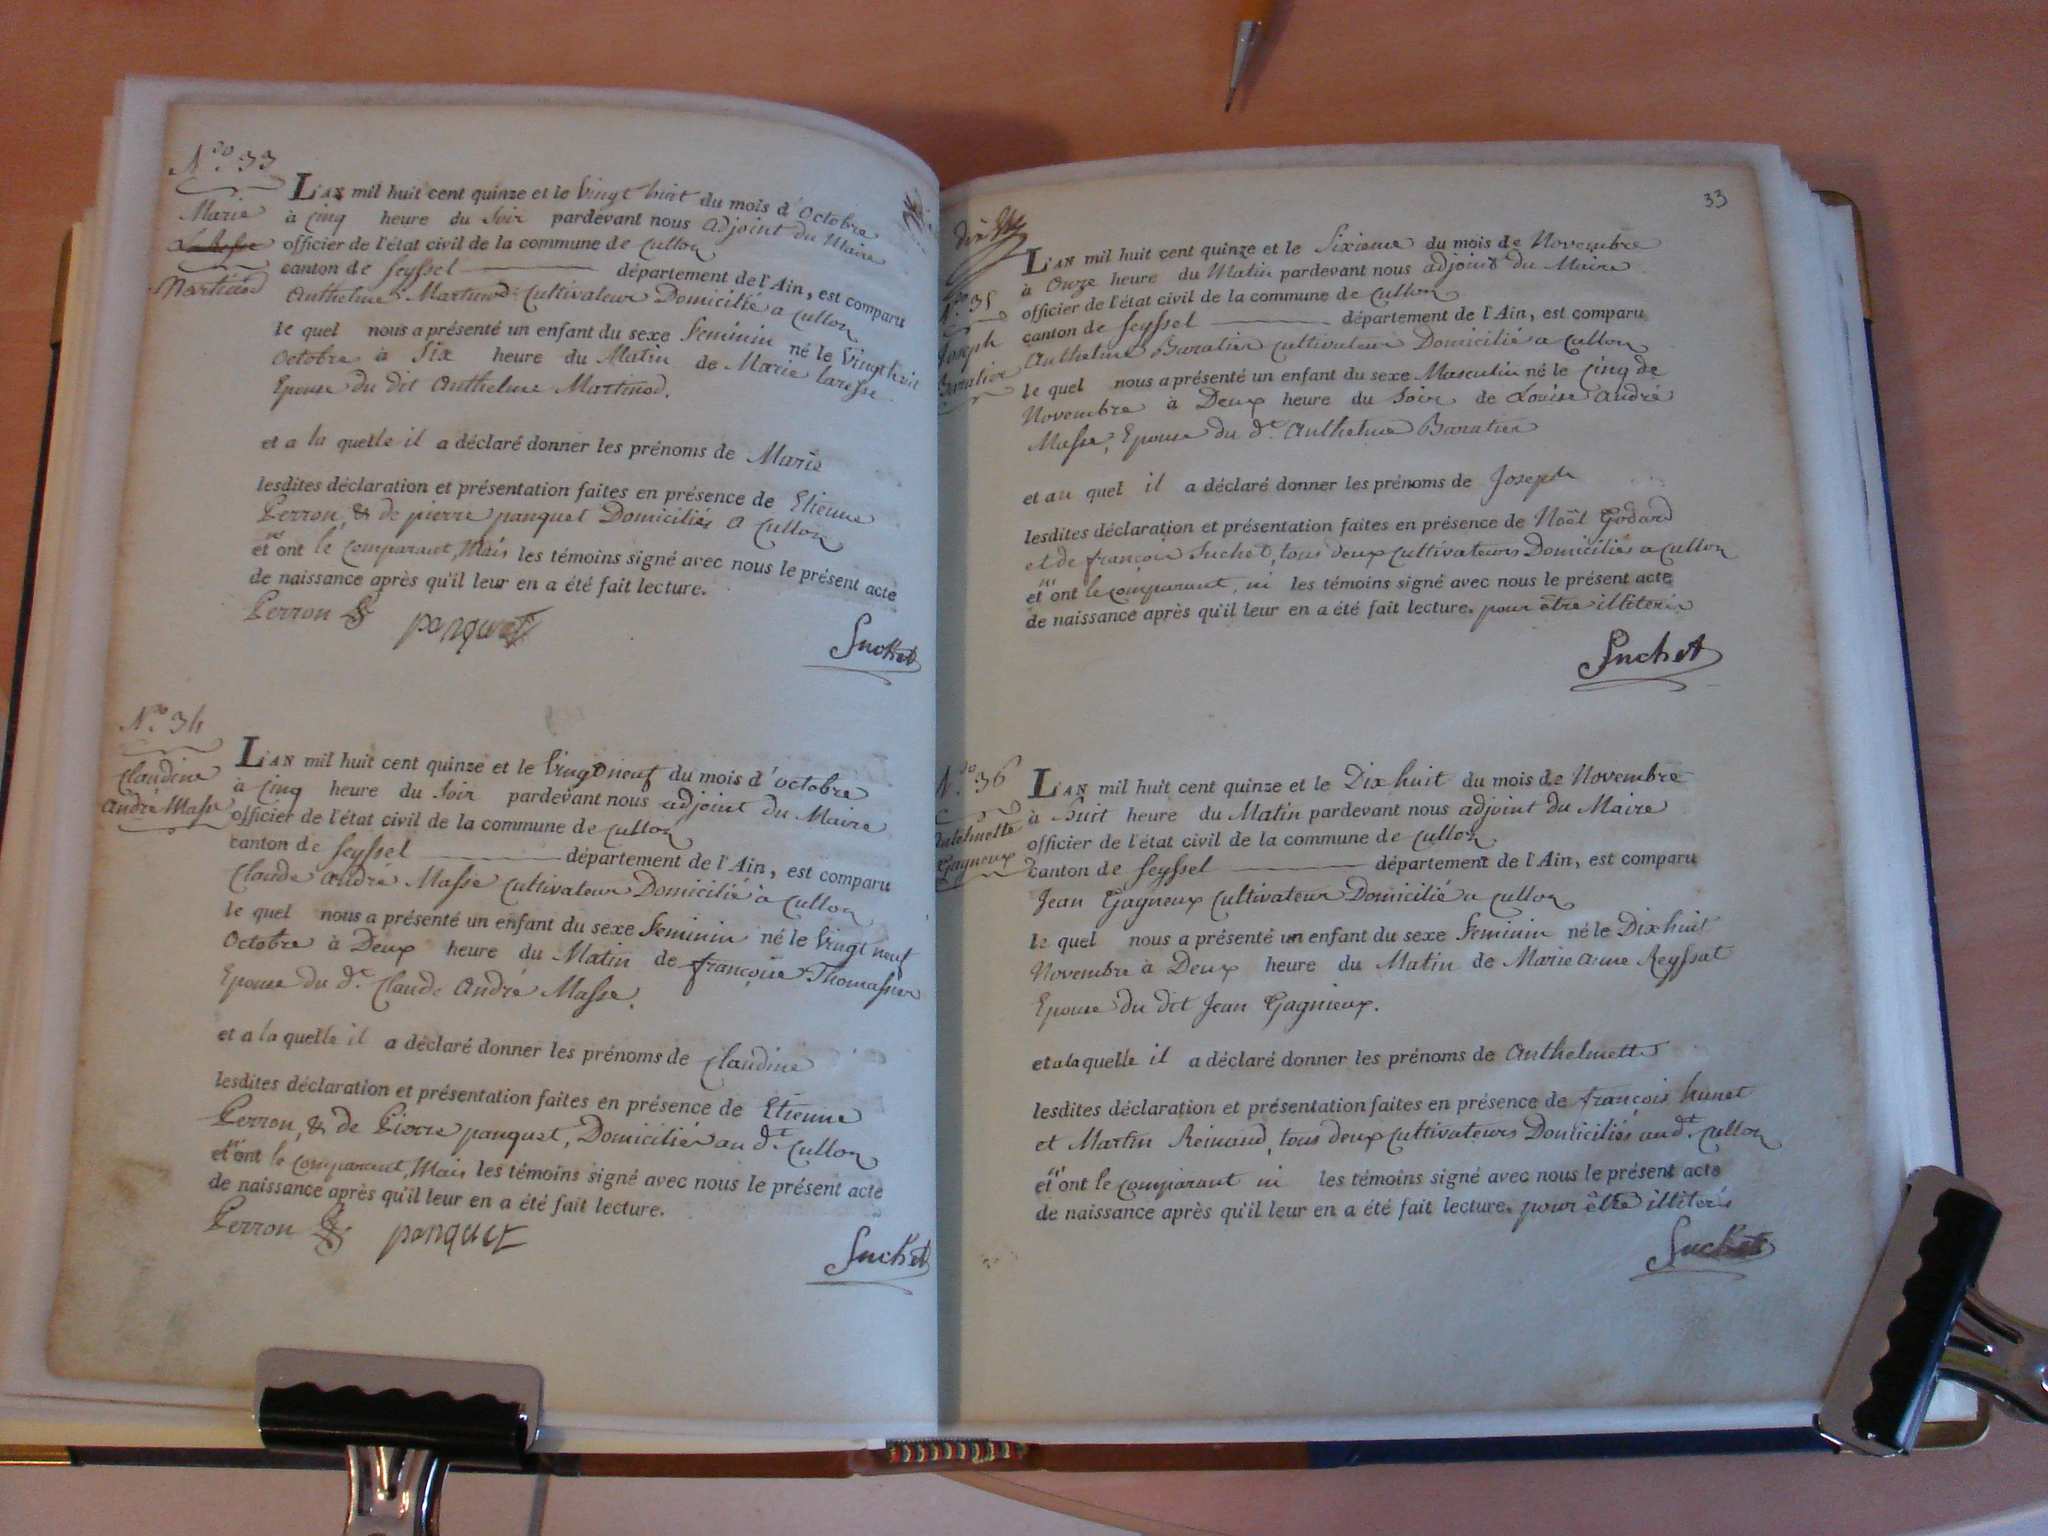 N.º 33
Marie
Martinod
L'AN mil huit cent quinze et le Vingt huit du mois d'Octobre
à Cinq heure du Soir pardevant nous adjoint du Maire
officier de l'état civil de la commune de Cullon
canton de Seyssel département de l'Ain, est comparu
Anthelme Martinod Cultivateur Domicilié a Cullon
le quel nous a présenté un enfant du sexe Feminin né le Vingt huit
Octobre à Six heure du Matin de Marie laresse
Epouse du dit Anthelme Martinod.
et a la quelle il a déclaré donner les prénoms de Marie
lesdites déclaration et présentation faites en présence de Etienne
Perron, & de pierre panquet Domiciliés a Cullon
et n'ont le comparant, Mais les témoins signé avec nous le présent acte
de naissance après qu'il leur en a été fait lecture.
Perron panquet
Suchet
N.º 34
Claudine
André Masse
L'AN mil huit cent quinze et le Vingt neuf du mois d'octobre
à Cinq heure du Soir pardevant nous adjoint du Maire
officier de l'état civil de la commune de Cullon
canton de Seyssel département de l'Ain, est comparu
Claude André Masse Cultivateur Domicilié à Cullon
le quel nous a présenté un enfant du sexe Feminin né le Vingt neuf
Octobre à Deux heure du Matin de françoise Thomasset
Epouse du d.t Claude André Masse.
et a la quelle il a déclaré donner les prénoms de Claudine
lesdites déclaration et présentation faites en présence de Etienne
Perron, & de Pierre panquet, Domiciliés au d.t Cullon
et n'ont le comparant, Mais les témoins signé avec nous le présent acte
de naissance après qu'il leur en a été fait lecture.
Perron panquet
Suchet
33
N.º 35
Joseph
Baratier
L'AN mil huit cent quinze et le Sixieme du mois de Novembre
à Onze heure du Matin pardevant nous adjoint du Maire
officier de l'état civil de la commune de Cullon
canton de Seyssel département de l'Ain, est comparu
Anthelme Baratier Cultivateur Domicilié a Cullon
le quel nous a présenté un enfant du sexe Masculin né le Cinq de
Novembre à Deux heure du Soir de Louise André
Masse, Epouse du d.t Anthelme Baratier
et au quel il a déclaré donner les prénoms de Joseph
lesdites déclaration et présentation faites en présence de Noël Godard
et de françois Suchet, tous deux Cultivateurs Domiciliés a Cullon
et n'ont le comparant, ni les témoins signé avec nous le présent acte
de naissance après qu'il leur en a été fait lecture. pour être illiterés
Suchet
N.º 36
Antelmette
Gagneux
L'AN mil huit cent quinze et le Dix huit du mois de Novembre
à huit heure du Matin pardevant nous adjoint du Maire
officier de l'état civil de la commune de Cullon
canton de Seyssel département de l'Ain, est comparu
Jean Gagneux Cultivateur Domicilié a Cullon
le quel nous a présenté un enfant du sexe Feminin né le Dix huit
Novembre à Deux heure du Matin de Marie anne Reyssat
Epouse du dit Jean Gagnieux.
et a la quelle il a déclaré donner les prénoms de Anthelmette
lesdites déclaration et présentation faites en présence de françois hunet
et Martin Reimond, tous deux Cultivateurs Domiciliés au d.t Cullon
et n'ont le comparant ni les témoins signé avec nous le présent acte
de naissance après qu'il leur en a été fait lecture. pour être illiterés
Suchet